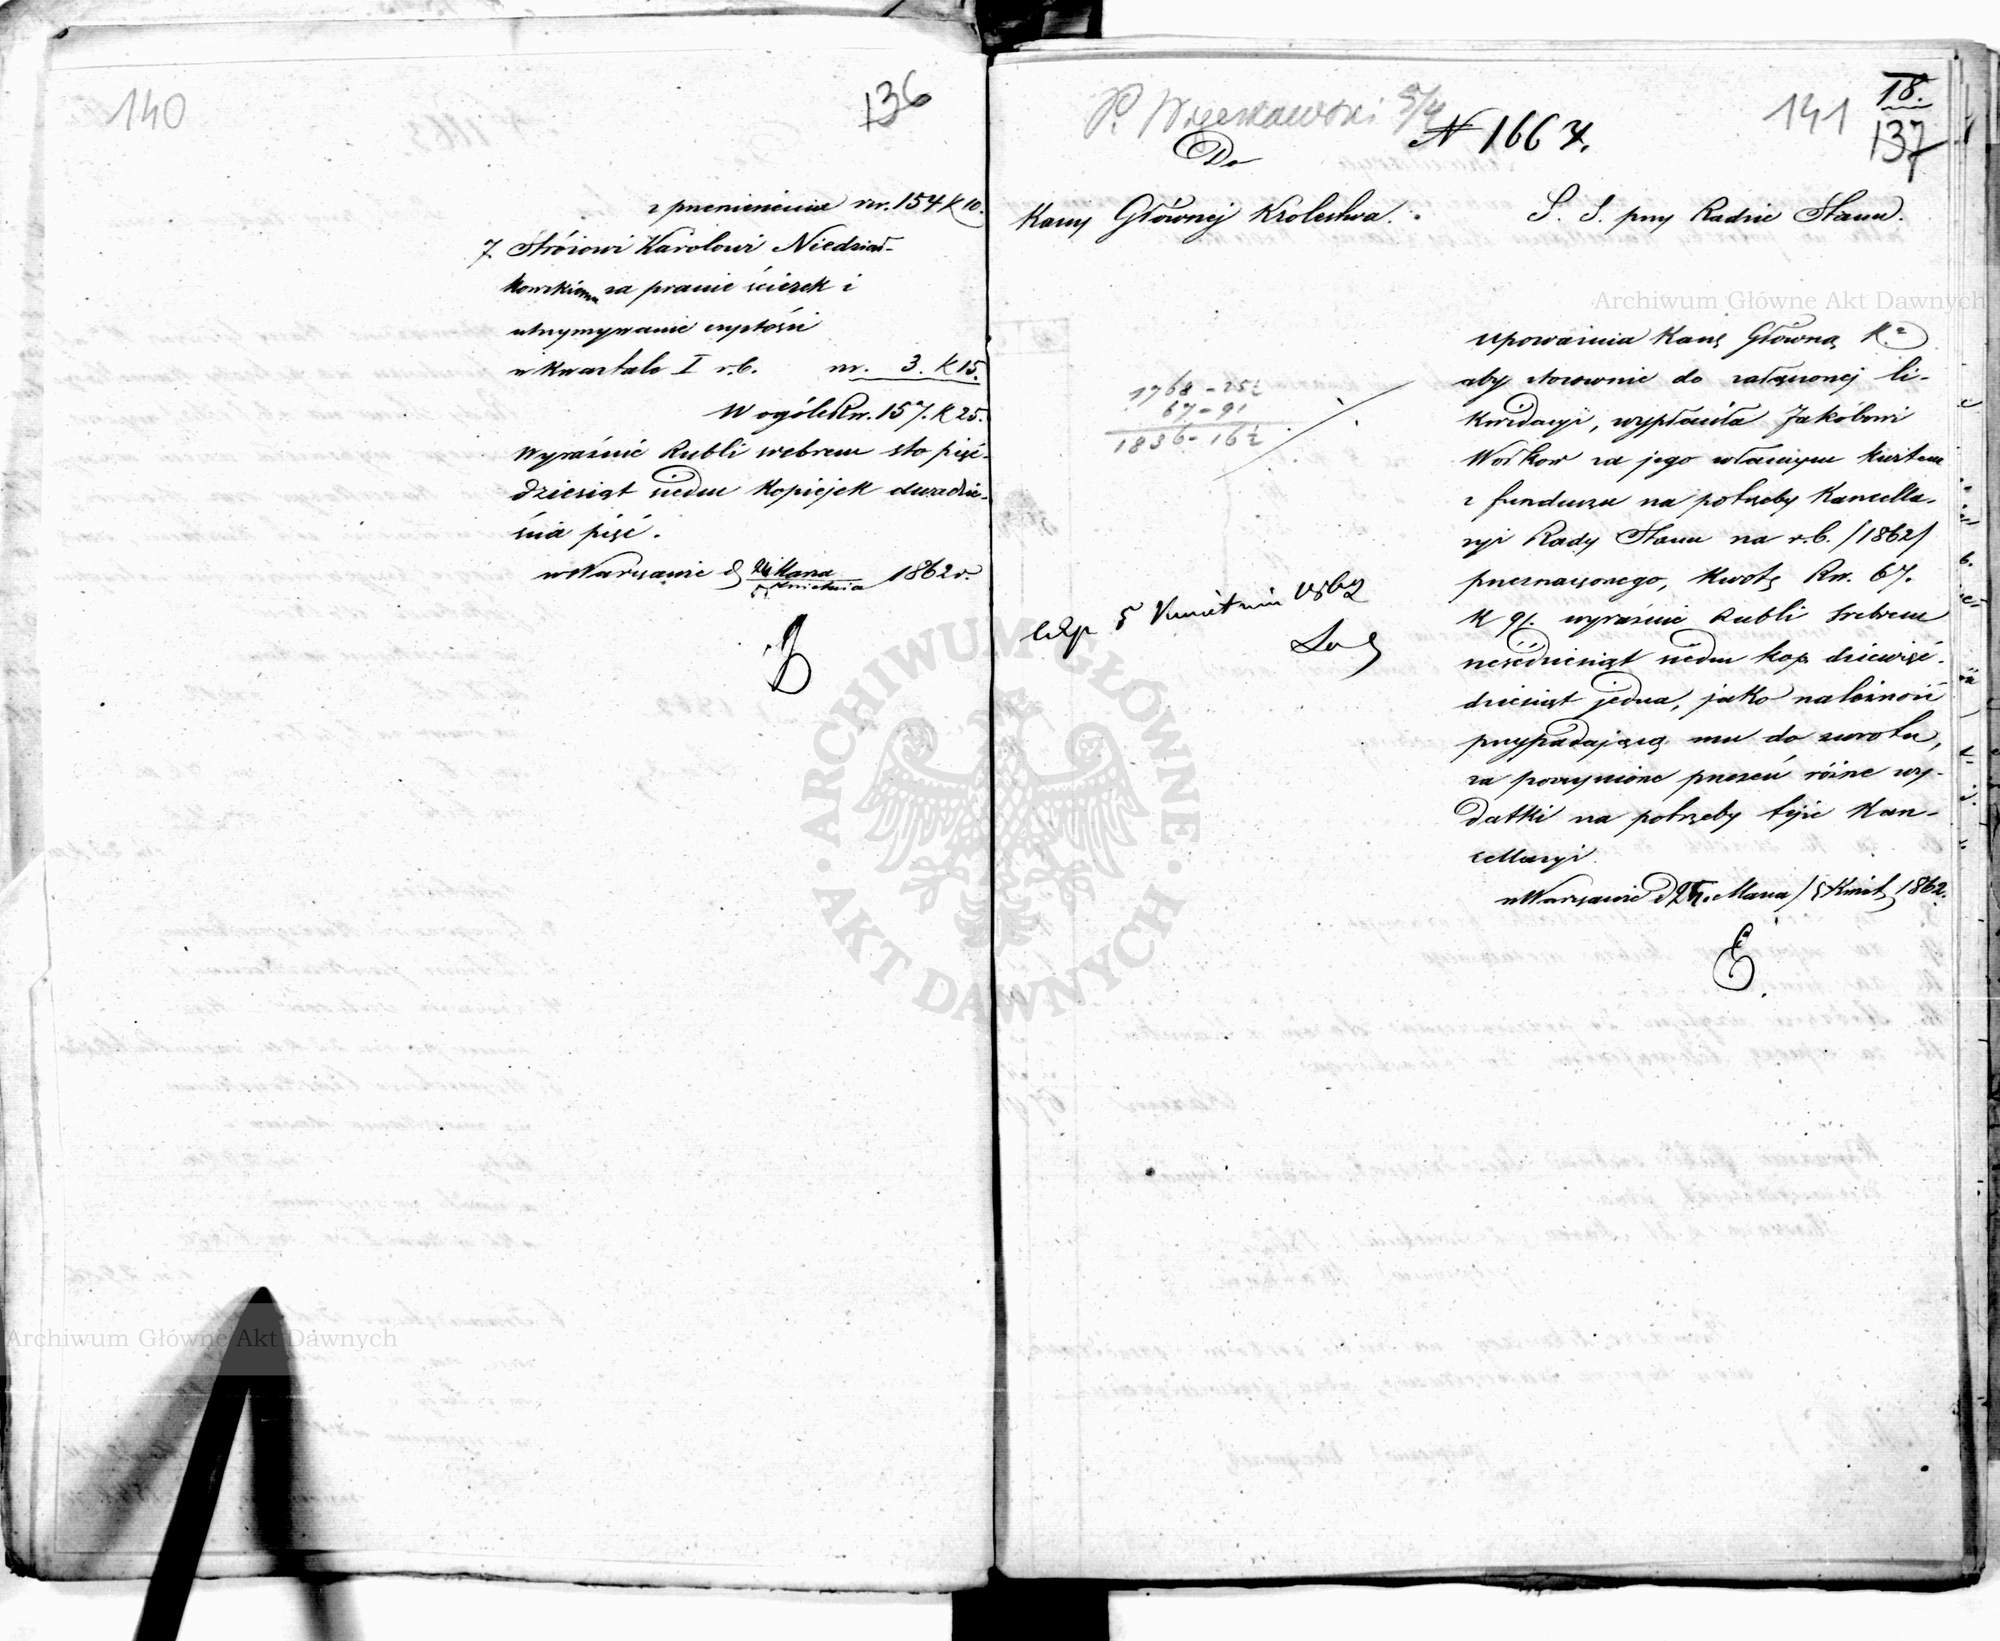 140
136
z przeniesienia rsr. 154 k 10.
7. Stróżowi Karolowi Niedział-
kowskiemu za pranie ścierek i
utrzymywanie czystości
w kwartale I r.b. rsr. 3. k 15.
W ogóle Rsr. 157. k 25.
Wyraźnie Rubli srebrem sto pięć-
dziesiąt siedm kopiejek dwadzie-
ścia pięć.
w Warszawie d 24 Marca / 5 Kwietnia 1862 r.
P. 5/4
N 1667.
141
18.
137
Do
Kassy Głównej Królestwa.
S. S. przy Radzie Stanu.
upoważnia Kassę Główną K.
aby stosownie do załączonej li-
kwidacyi, wypłaciła Jakóbowi
Wołkow za jego własnym kwitem
z funduszu na potrzeby Kancella-
ryi Rady Stanu na r.b. /1862/
przeznaczonego, kwotę Rsr. 67.
k 91. wyraźnie Rubli Srebrem
sześćdziesiąt siedm kop. dziewięć-
dziesiąt jedna, jako należność
przypadającą mu do zwrotu,
za poczynione przezeń różne wy-
datki na potrzeby tejże Kan-
cellaryi.
w Warszawie d 24 Marca / 5 Kwiet. 1862.
1768 - 25½
67 - 91
1836 - 16½
Exp 5 Kwietnia 1862
Archiwum Główne Akt Dawnych
Archiwum Główne Akt Dawnych
ARCHIWUM GŁÓWNE · AKT DAWNYCH ·